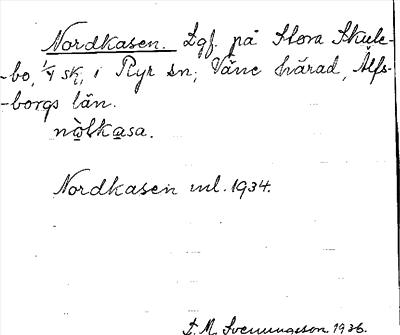 Nordkasen. Lgf. på Stora Skule-
-bo, 1/4 sk, i Ryr sn; Väne härad, Älfs-
-borgs län.
nò̤lka̤sa.
Nordkasen ml. 1934.
L. M. Svenungsson. 1936.